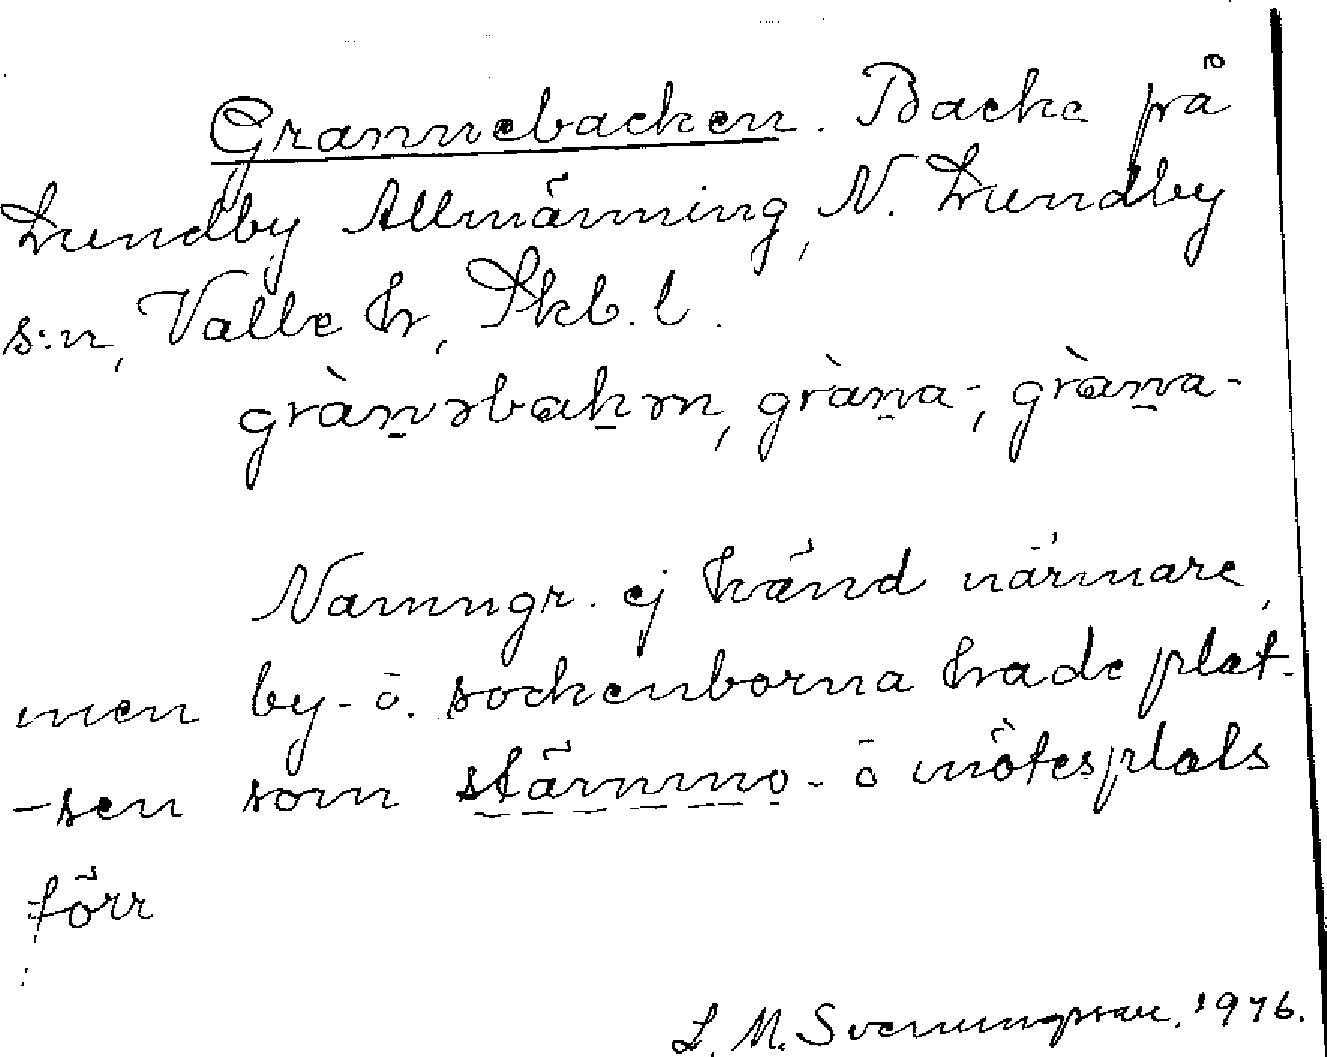 Grannebacken. Backe på
Lundby Allmänning, N. Lundby
s:n, Valle hr, Skb. l.
grànəbakən, gràna-, gràna-
Namngr. ej känd närmare,
men by- o. sockenborna hade plat-
-sen som stämmo- o mötesplats
förr
L. M. Svenungsson. 1976.